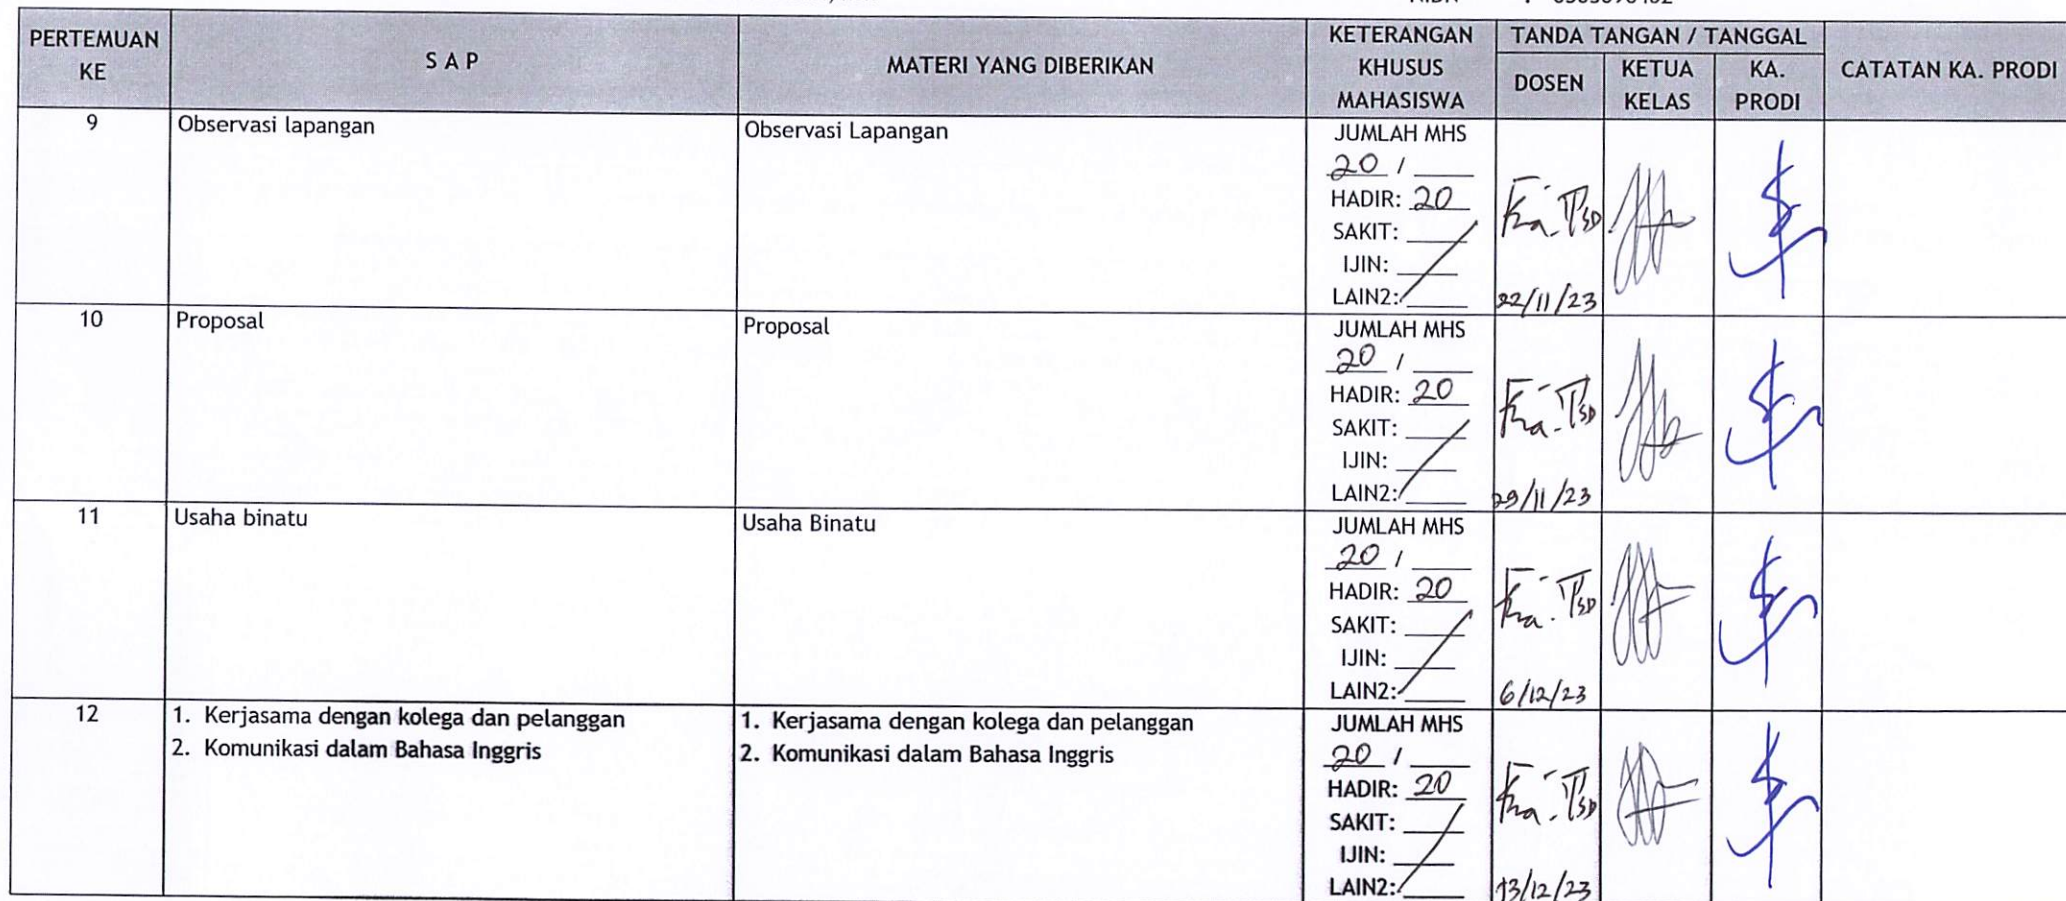 PERTEMUAN KE
S A P
MATERI YANG DIBERIKAN
KETERANGAN KHUSUS MAHASISWA
TANDA TANGAN / TANGGAL
DOSEN
KETUA KELAS
KA. PRODI
CATATAN KA. PRODI
9
Observasi lapangan
Observasi Lapangan
JUMLAH MHS
20 /
HADIR: 20
SAKIT:
IJIN:
LAIN2:
22/11/23
10
Proposal
Proposal
JUMLAH MHS
20 /
HADIR: 20
SAKIT:
IJIN:
LAIN2:
29/11/23
11
Usaha binatu
Usaha Binatu
JUMLAH MHS
20 /
HADIR: 20
SAKIT:
IJIN:
LAIN2:
6/12/23
12
1. Kerjasama dengan kolega dan pelanggan
2. Komunikasi dalam Bahasa Inggris
1. Kerjasama dengan kolega dan pelanggan
2. Komunikasi dalam Bahasa Inggris
JUMLAH MHS
20 /
HADIR: 20
SAKIT:
IJIN:
LAIN2:
13/12/23